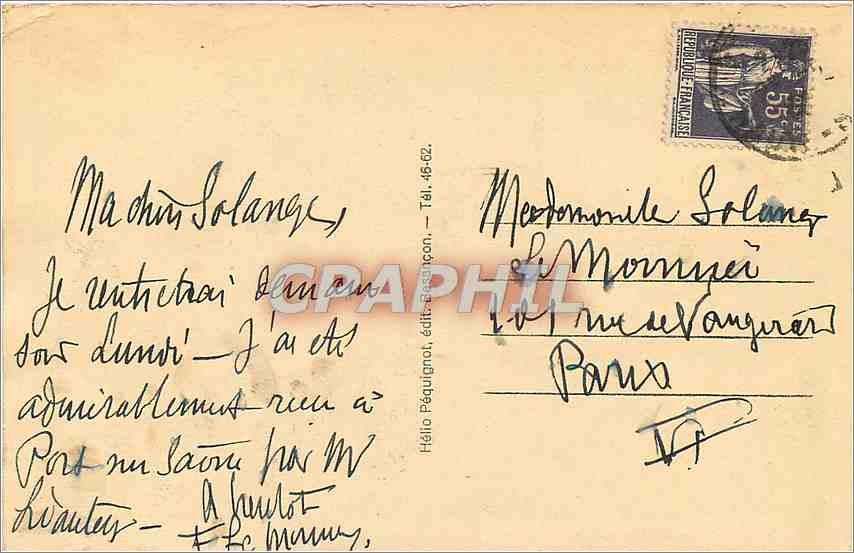 Ma chère Solange,
Je rentrerai demain
soir Lundi – J'ai été
admirablement reçu à
Port sur Saône par Mr
A bientôt
Hélio Péquignot, édit. Besançon. — Tél. 46-62.
REPUBLIQUE FRANÇAISE
POSTES
55c
Mademoiselle Solange
Le Monnier
101 rue de Vaugirard
Paris
VI
CPAPHIL